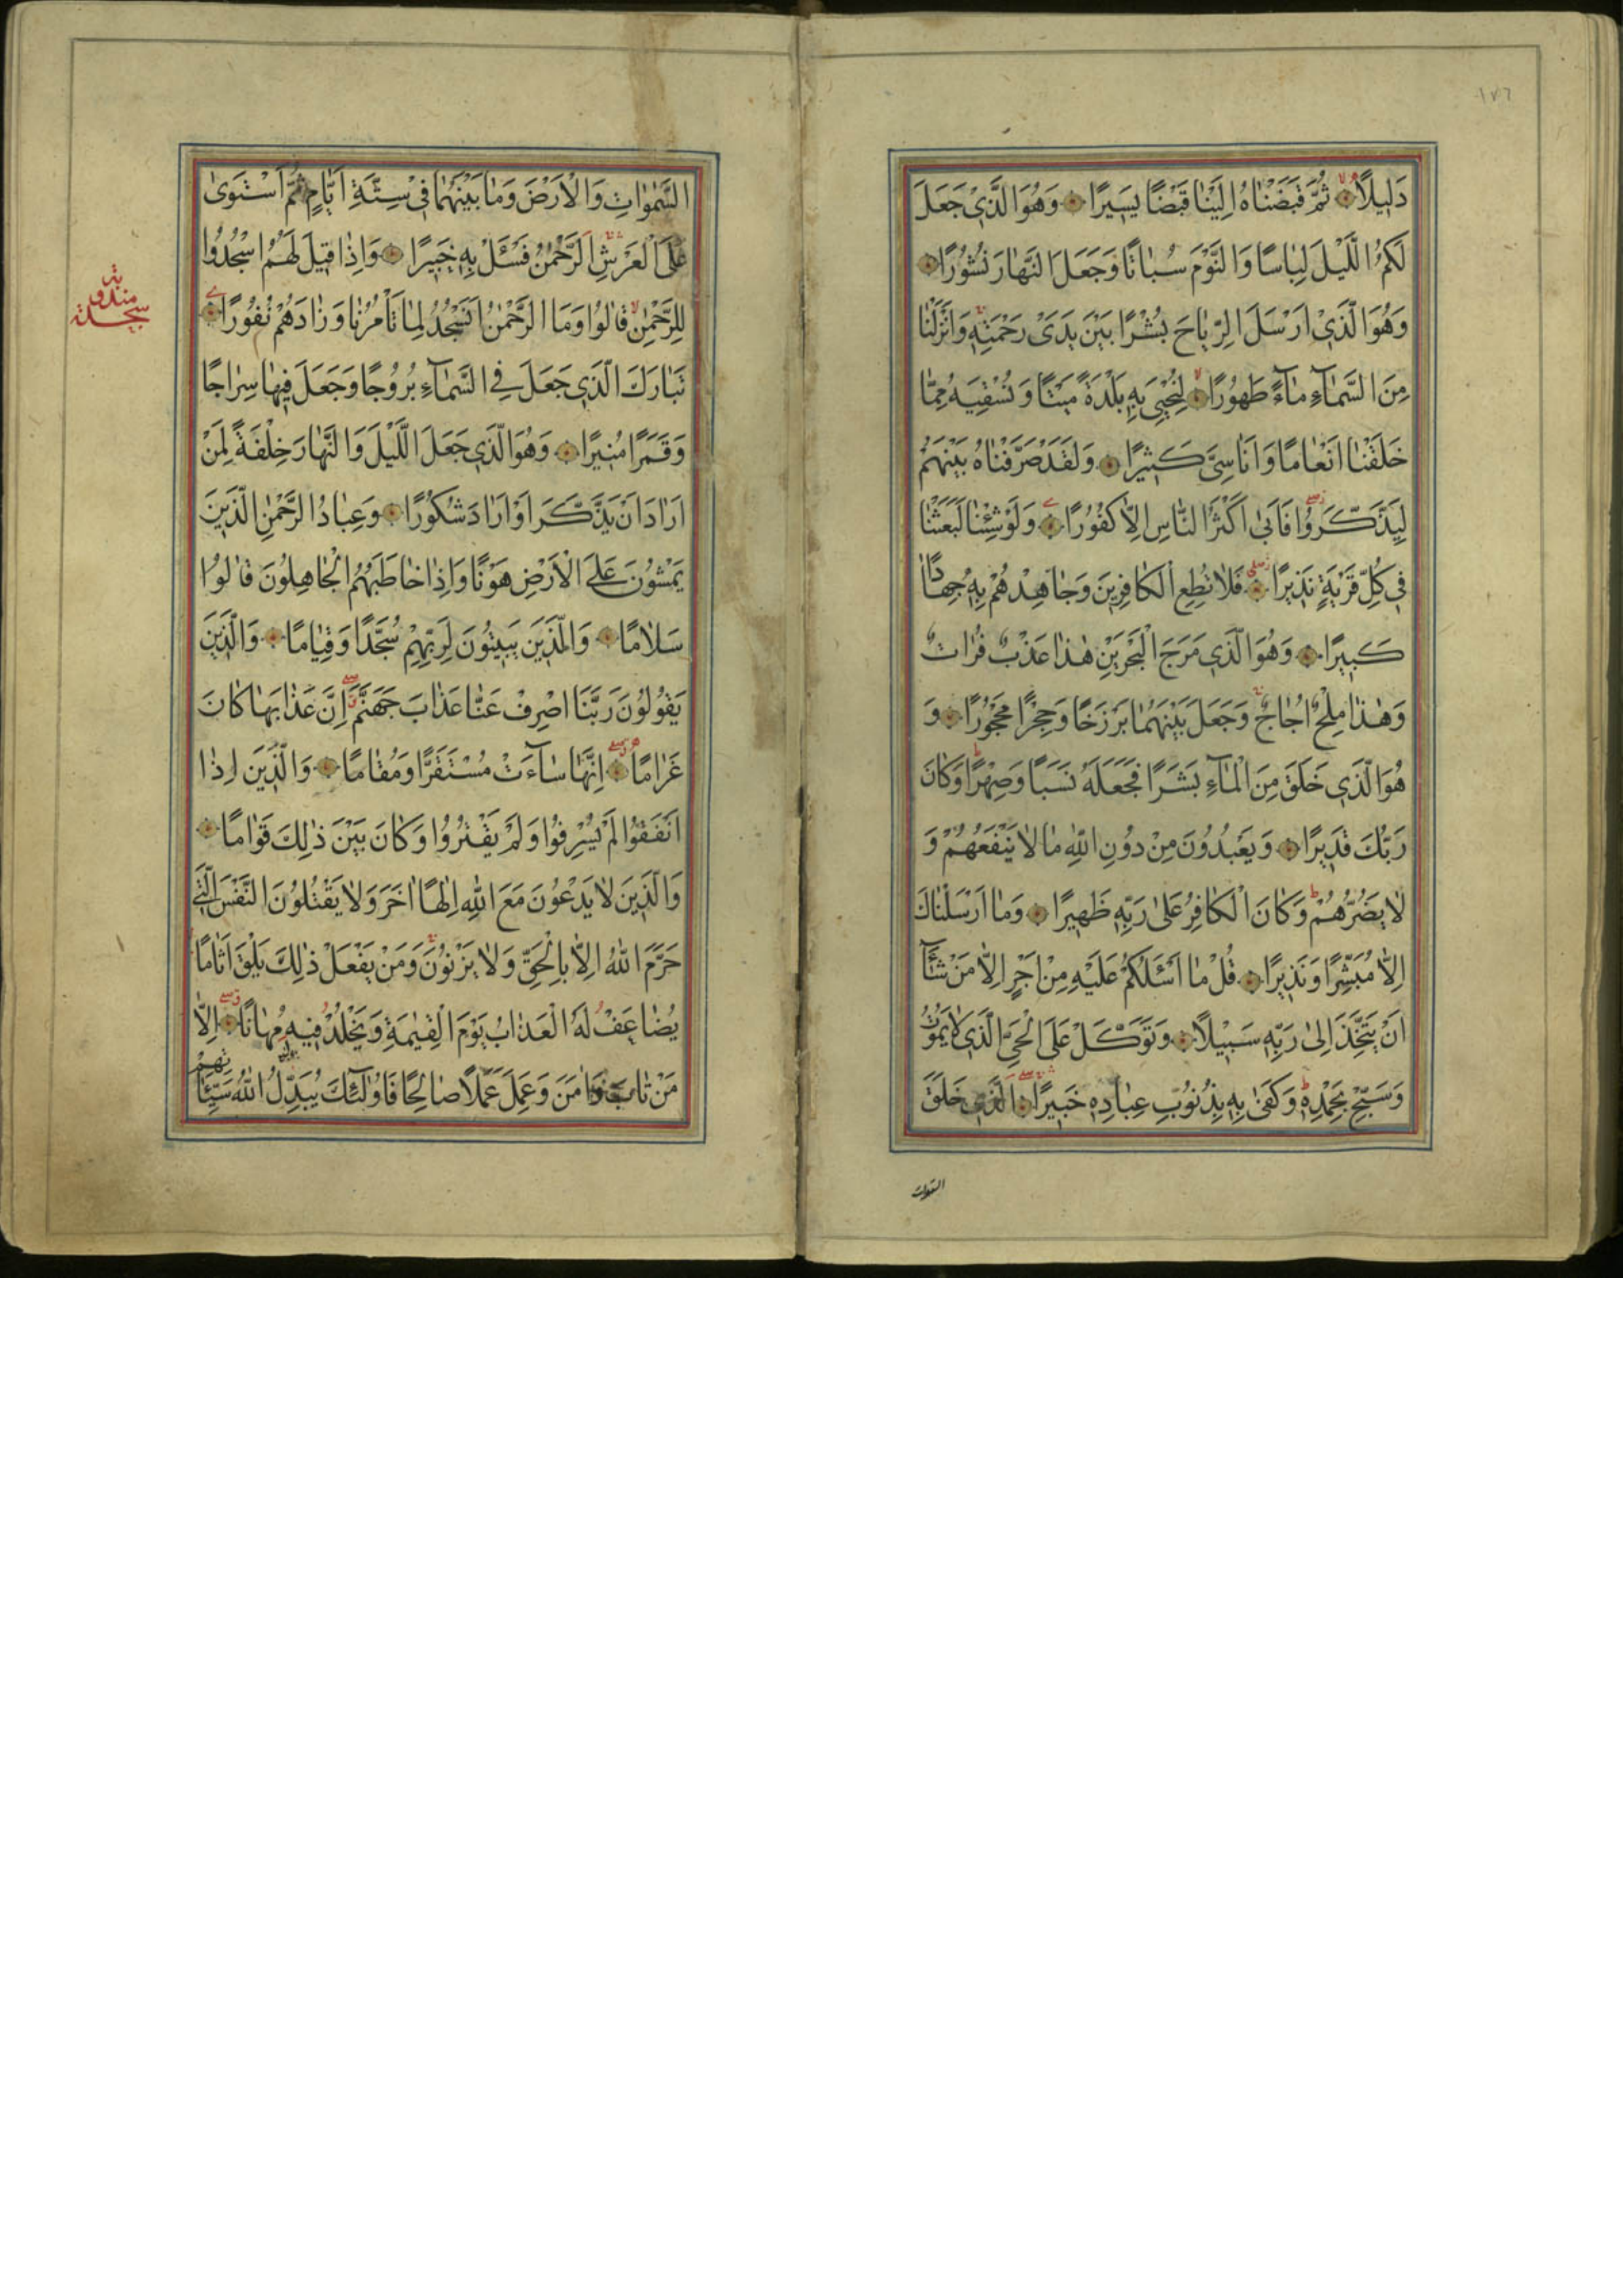 ١٧٦
دَلِيلًا ثُمَّ قَبَضْنَاهُ اِلَيْنَا قَبْضًا يَسِيرًا وَهُوَ الَّذِي جَعَلَ
لَكُمُ الَّيْلَ لِبَاسًا وَالنَّوْمَ سُبَاتًا وَجَعَلَ النَّهَارَ نُشُورًا
وَهُوَ الَّذِي اَرْسَلَ الرِّيَاحَ بُشْرًا بَيْنَ يَدَيْ رَحْمَتِهِ وَاَنْزَلْنَا
مِنَ السَّمَآءِ مَآءً طَهُورًا لِنُحْيِيَ بِهِ بَلْدَةً مَيْتًا وَنُسْقِيَهُ مِمَّا
خَلَقْنَا اَنْعَامًا وَاَنَاسِيَّ كَثِيرًا وَلَقَدْ صَرَّفْنَاهُ بَيْنَهُمْ
لِيَذَّكَّرُوا فَاَبٰى اَكْثَرُ النَّاسِ اِلَّا كُفُورًا وَلَوْ شِئْنَا لَبَعَثْنَا
فِي كُلِّ قَرْيَةٍ نَذِيرًا فَلَا تُطِعِ الْكَافِرِينَ وَجَاهِدْهُمْ بِهِ جِهَادًا
كَبِيرًا وَهُوَ الَّذِي مَرَجَ الْبَحْرَيْنِ هٰذَا عَذْبٌ فُرَاتٌ
وَهٰذَا مِلْحٌ اُجَاجٌ وَجَعَلَ بَيْنَهُمَا بَرْزَخًا وَحِجْرًا مَحْجُورًا وَ
هُوَ الَّذِي خَلَقَ مِنَ الْمَآءِ بَشَرًا فَجَعَلَهُ نَسَبًا وَصِهْرًا وَكَانَ
رَبُّكَ قَدِيرًا وَيَعْبُدُونَ مِنْ دُونِ اللّٰهِ مَا لَا يَنْفَعُهُمْ وَ
لَا يَضُرُّهُمْ وَكَانَ الْكَافِرُ عَلٰى رَبِّهِ ظَهِيرًا وَمَا اَرْسَلْنَاكَ
اِلَّا مُبَشِّرًا وَنَذِيرًا قُلْ مَا اَسْئَلُكُمْ عَلَيْهِ مِنْ اَجْرٍ اِلَّا مَنْ شَآءَ
اَنْ يَتَّخِذَ اِلٰى رَبِّهِ سَبِيلًا وَتَوَكَّلْ عَلَى الْحَيِّ الَّذِي لَا يَمُوتُ
وَسَبِّحْ بِحَمْدِهِ وَكَفٰى بِهِ بِذُنُوبِ عِبَادِهِ خَبِيرًا الَّذِي خَلَقَ
السموات
السَّمٰوَاتِ وَالْاَرْضَ وَمَا بَيْنَهُمَا فِي سِتَّةِ اَيَّامٍ ثُمَّ اسْتَوٰى
عَلَى الْعَرْشِ اَلرَّحْمٰنُ فَسْئَلْ بِهِ خَبِيرًا وَاِذَا قِيلَ لَهُمُ اسْجُدُوا
لِلرَّحْمٰنِ قَالُوا وَمَا الرَّحْمٰنُ اَنَسْجُدُ لِمَا تَأْمُرُنَا وَزَادَهُمْ نُفُورًا
تَبَارَكَ الَّذِي جَعَلَ فِي السَّمَآءِ بُرُوجًا وَجَعَلَ فِيهَا سِرَاجًا
وَقَمَرًا مُنِيرًا وَهُوَ الَّذِي جَعَلَ الَّيْلَ وَالنَّهَارَ خِلْفَةً لِمَنْ
اَرَادَ اَنْ يَذَّكَّرَ اَوْ اَرَادَ شُكُورًا وَعِبَادُ الرَّحْمٰنِ الَّذِينَ
يَمْشُونَ عَلَى الْاَرْضِ هَوْنًا وَاِذَا خَاطَبَهُمُ الْجَاهِلُونَ قَالُوا
سَلَامًا وَالَّذِينَ يَبِيتُونَ لِرَبِّهِمْ سُجَّدًا وَقِيَامًا وَالَّذِينَ
يَقُولُونَ رَبَّنَا اصْرِفْ عَنَّا عَذَابَ جَهَنَّمَ اِنَّ عَذَابَهَا كَانَ
غَرَامًا اِنَّهَا سَآءَتْ مُسْتَقَرًّا وَمُقَامًا وَالَّذِينَ اِذَا
اَنْفَقُوا لَمْ يُسْرِفُوا وَلَمْ يَقْتُرُوا وَكَانَ بَيْنَ ذٰلِكَ قَوَامًا
وَالَّذِينَ لَا يَدْعُونَ مَعَ اللّٰهِ اِلٰهًا اٰخَرَ وَلَا يَقْتُلُونَ النَّفْسَ الَّتِي
حَرَّمَ اللّٰهُ اِلَّا بِالْحَقِّ وَلَا يَزْنُونَ وَمَنْ يَفْعَلْ ذٰلِكَ يَلْقَ اَثَامًا
يُضَاعَفْ لَهُ الْعَذَابُ يَوْمَ الْقِيٰمَةِ وَيَخْلُدْ فِيهِ مُهَانًا اِلَّا
مَنْ تَابَ وَاٰمَنَ وَعَمِلَ عَمَلًا صَالِحًا فَاُولٰئِكَ يُبَدِّلُ اللّٰهُ سَيِّئَاتِهِمْ
سجدة